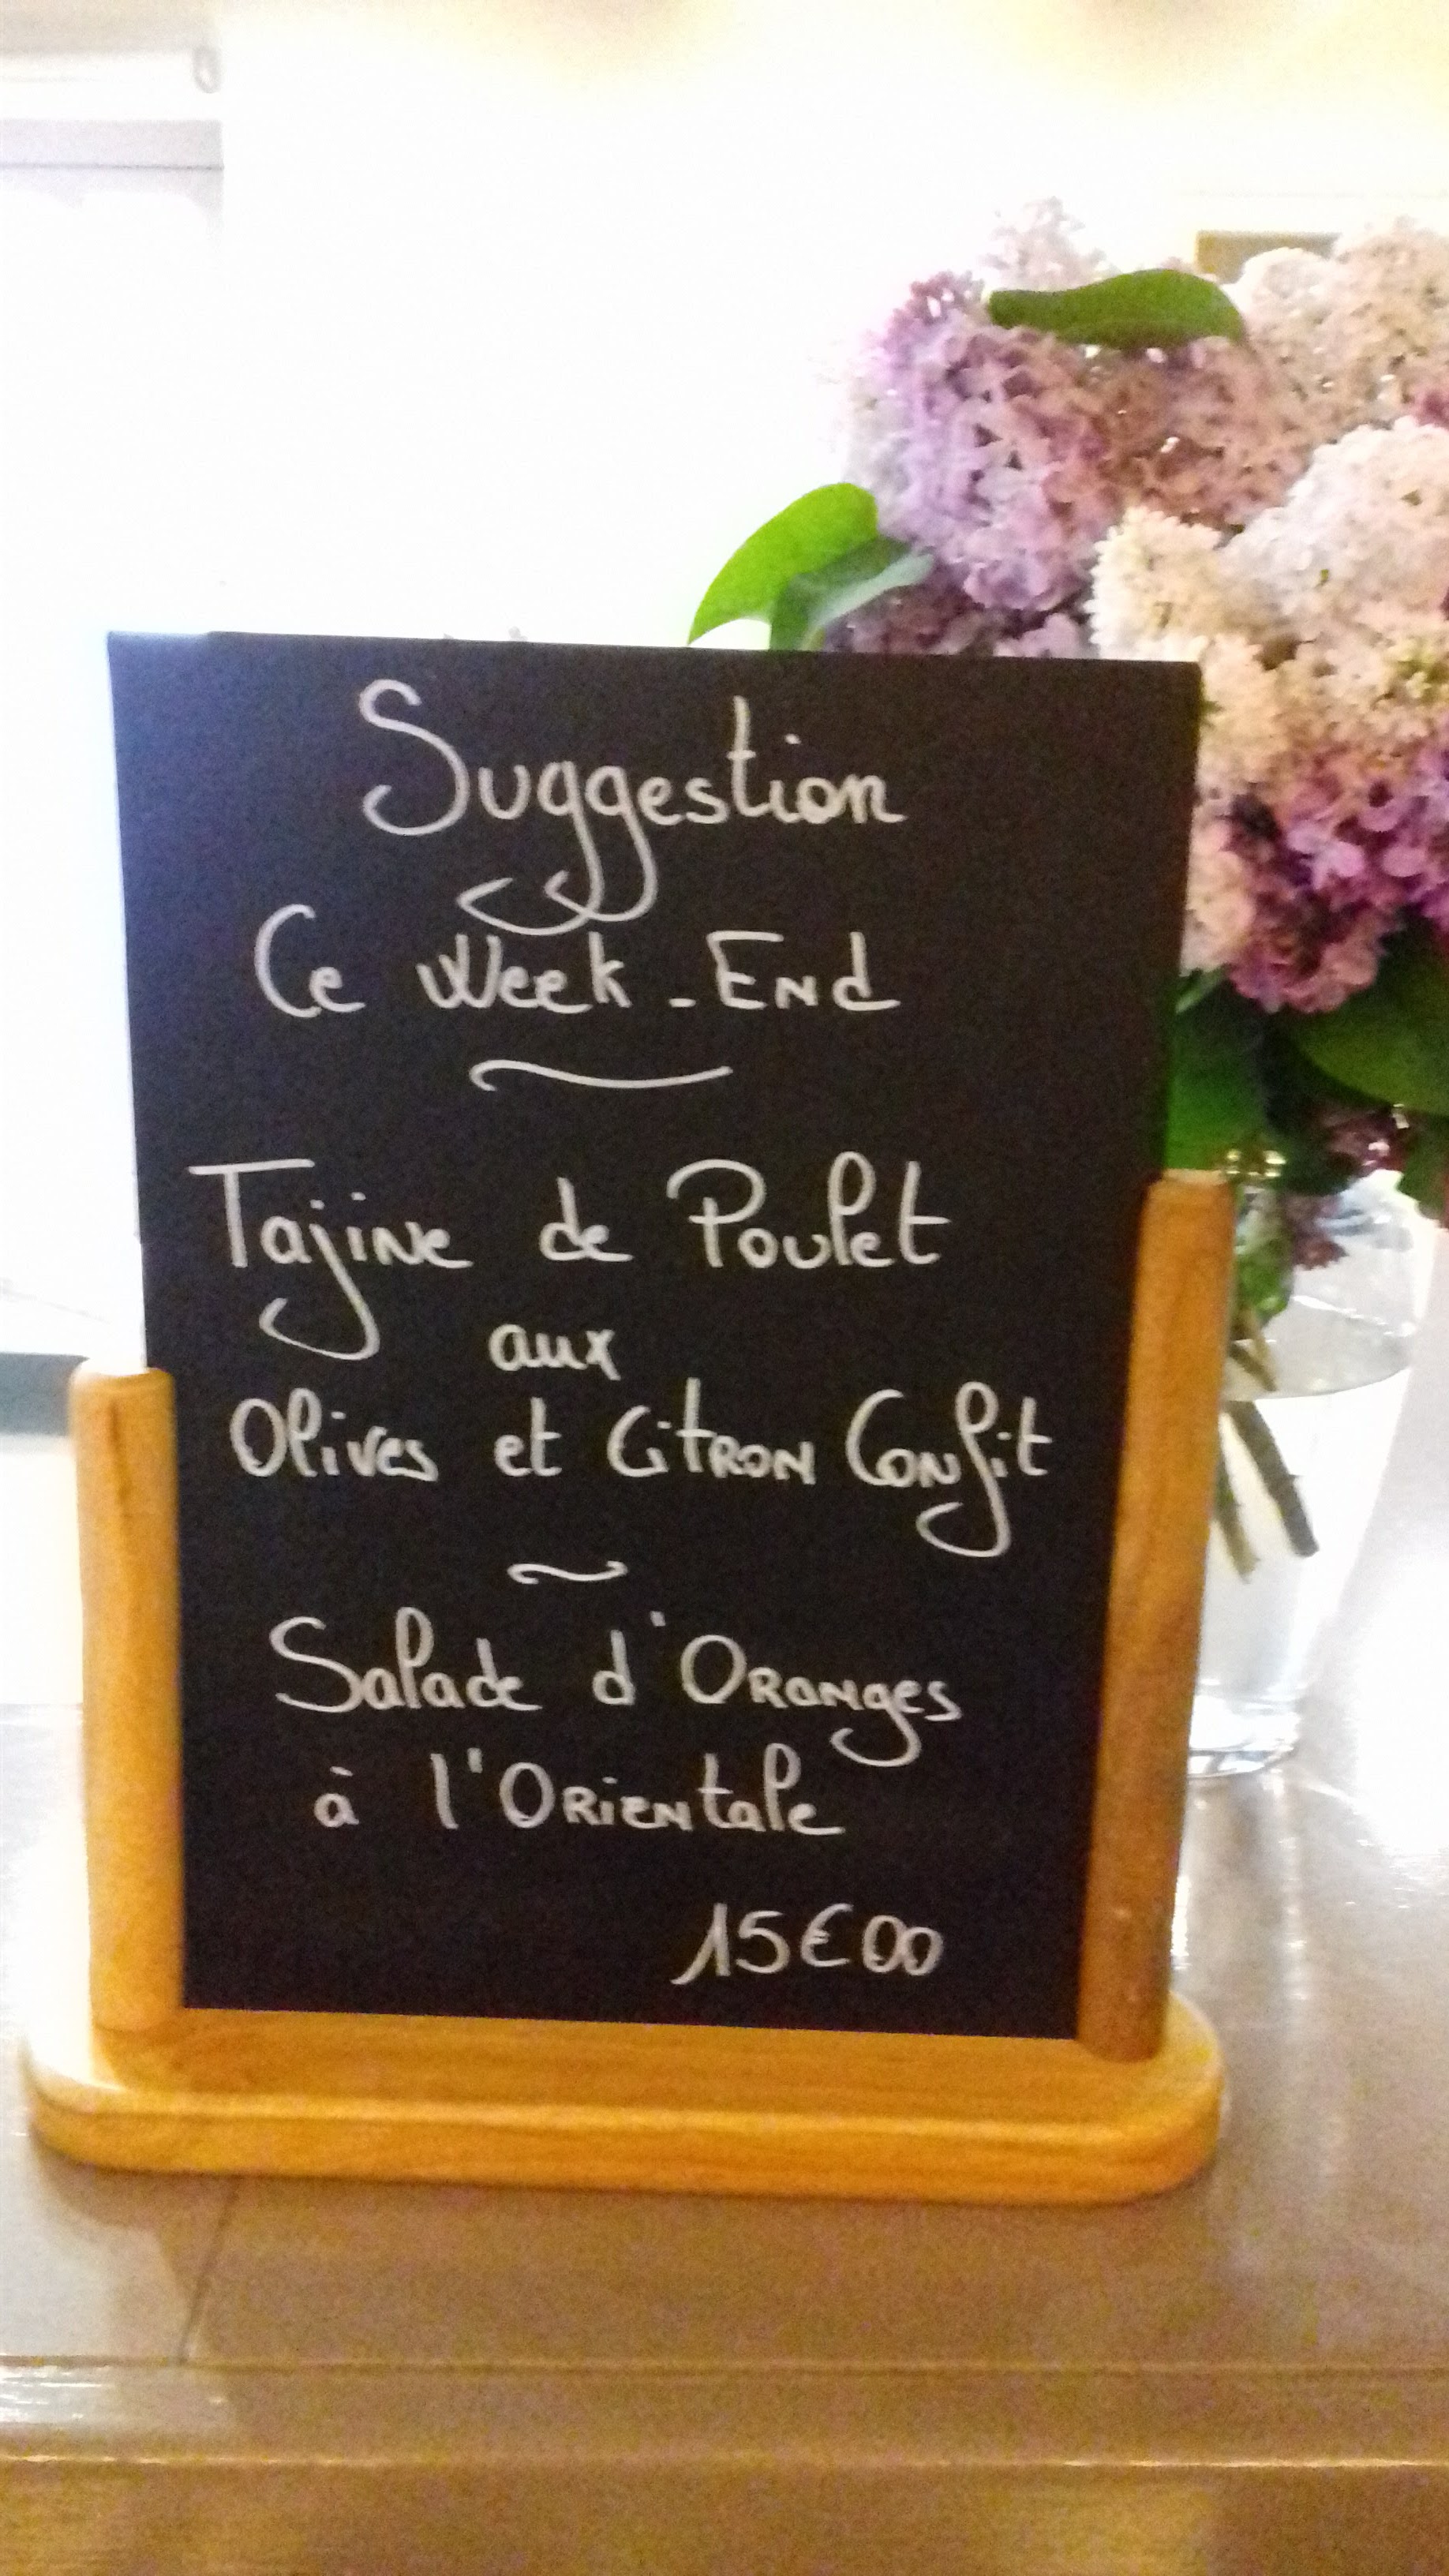 Suggestion
Ce Week-End
Tajine de Poulet
aux
Olives et Citron Confit
Salade d'Oranges
à l'Orientale
15€00